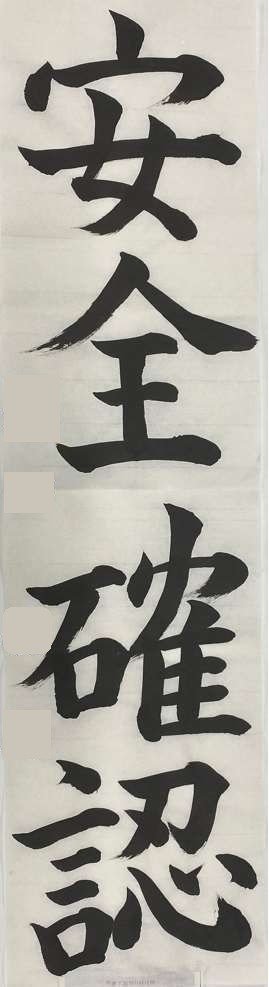 安全確認